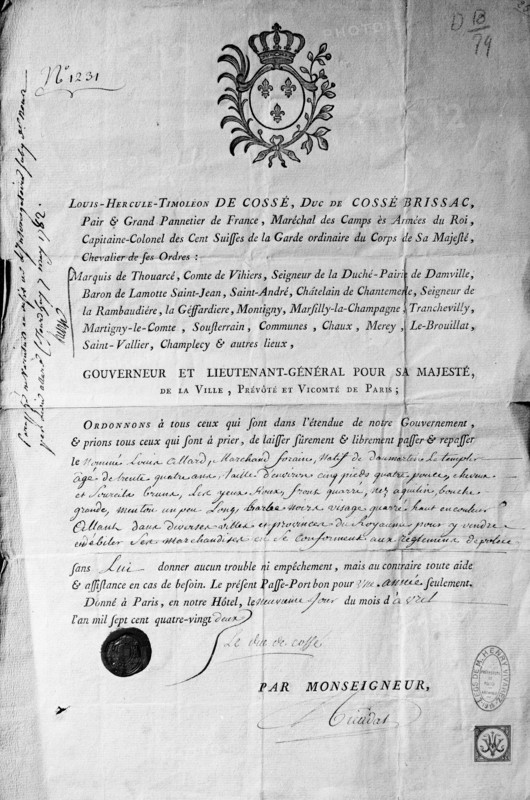 D 13
79
N° 1231
LOUIS-HERCULE-TIMOLÉON DE COSSÉ, DUC DE COSSÉ BRISSAC,
Pair & Grand Pannetier de France, Maréchal des Camps ès Armées du Roi,
Capitaine-Colonel des Cent Suisses de la Garde ordinaire du Corps de Sa Majesté,
Chevalier de ses Ordres :
Marquis de Thouarcé, Comte de Vihiers, Seigneur de la Duché-Pairie de Damville,
Baron de Lamotte Saint-Jean, Saint-André, Châtelain de Chantemerle, Seigneur de
la Rambaudière, la Géffardiere, Montigny, Marsilly-la-Champagne, Tranchevilly,
Martigny-le-Comte, Soufterrain, Communes, Chaux, Merey, Le-Brouillat,
Saint-Vallier, Champlecy & autres lieux,
GOUVERNEUR ET LIEUTENANT-GÉNÉRAL POUR SA MAJESTÉ,
DE LA VILLE, PRÉVÔTÉ ET VICOMTÉ DE PARIS ;
ORDONNONS à tous ceux qui sont dans l'étendue de notre Gouvernement,
& prions tous ceux qui sont à prier, de laisser sûrement & librement passer & repasser
le Nommé Louis Allard, Marchand forain, Natif de danmartin Le temple
âgé de trente quatre ans, taille d'environ cinq pieds quatre pouces, cheveux
et Sourcils bruns, Les yeux Roux, front quarré, nez aquilin bouche
grande, menton un peu Long, barbe noire visage quarré, haut en couleur
Allant dans diverses villes et provinces du Royaume pour y vendre
et débiter Ses marchandises en Se conformant aux règlemens de police
sans Lui donner aucun trouble ni empêchement, mais au contraire toute aide
& assistance en cas de besoin. Le présent Passe-Port bon pour une année seulement.
Donné à Paris, en notre Hôtel, le neuvieme jour du mois d'avril
l'an mil sept cent quatre-vingt deux
Le duc de cossé
PAR MONSEIGNEUR,